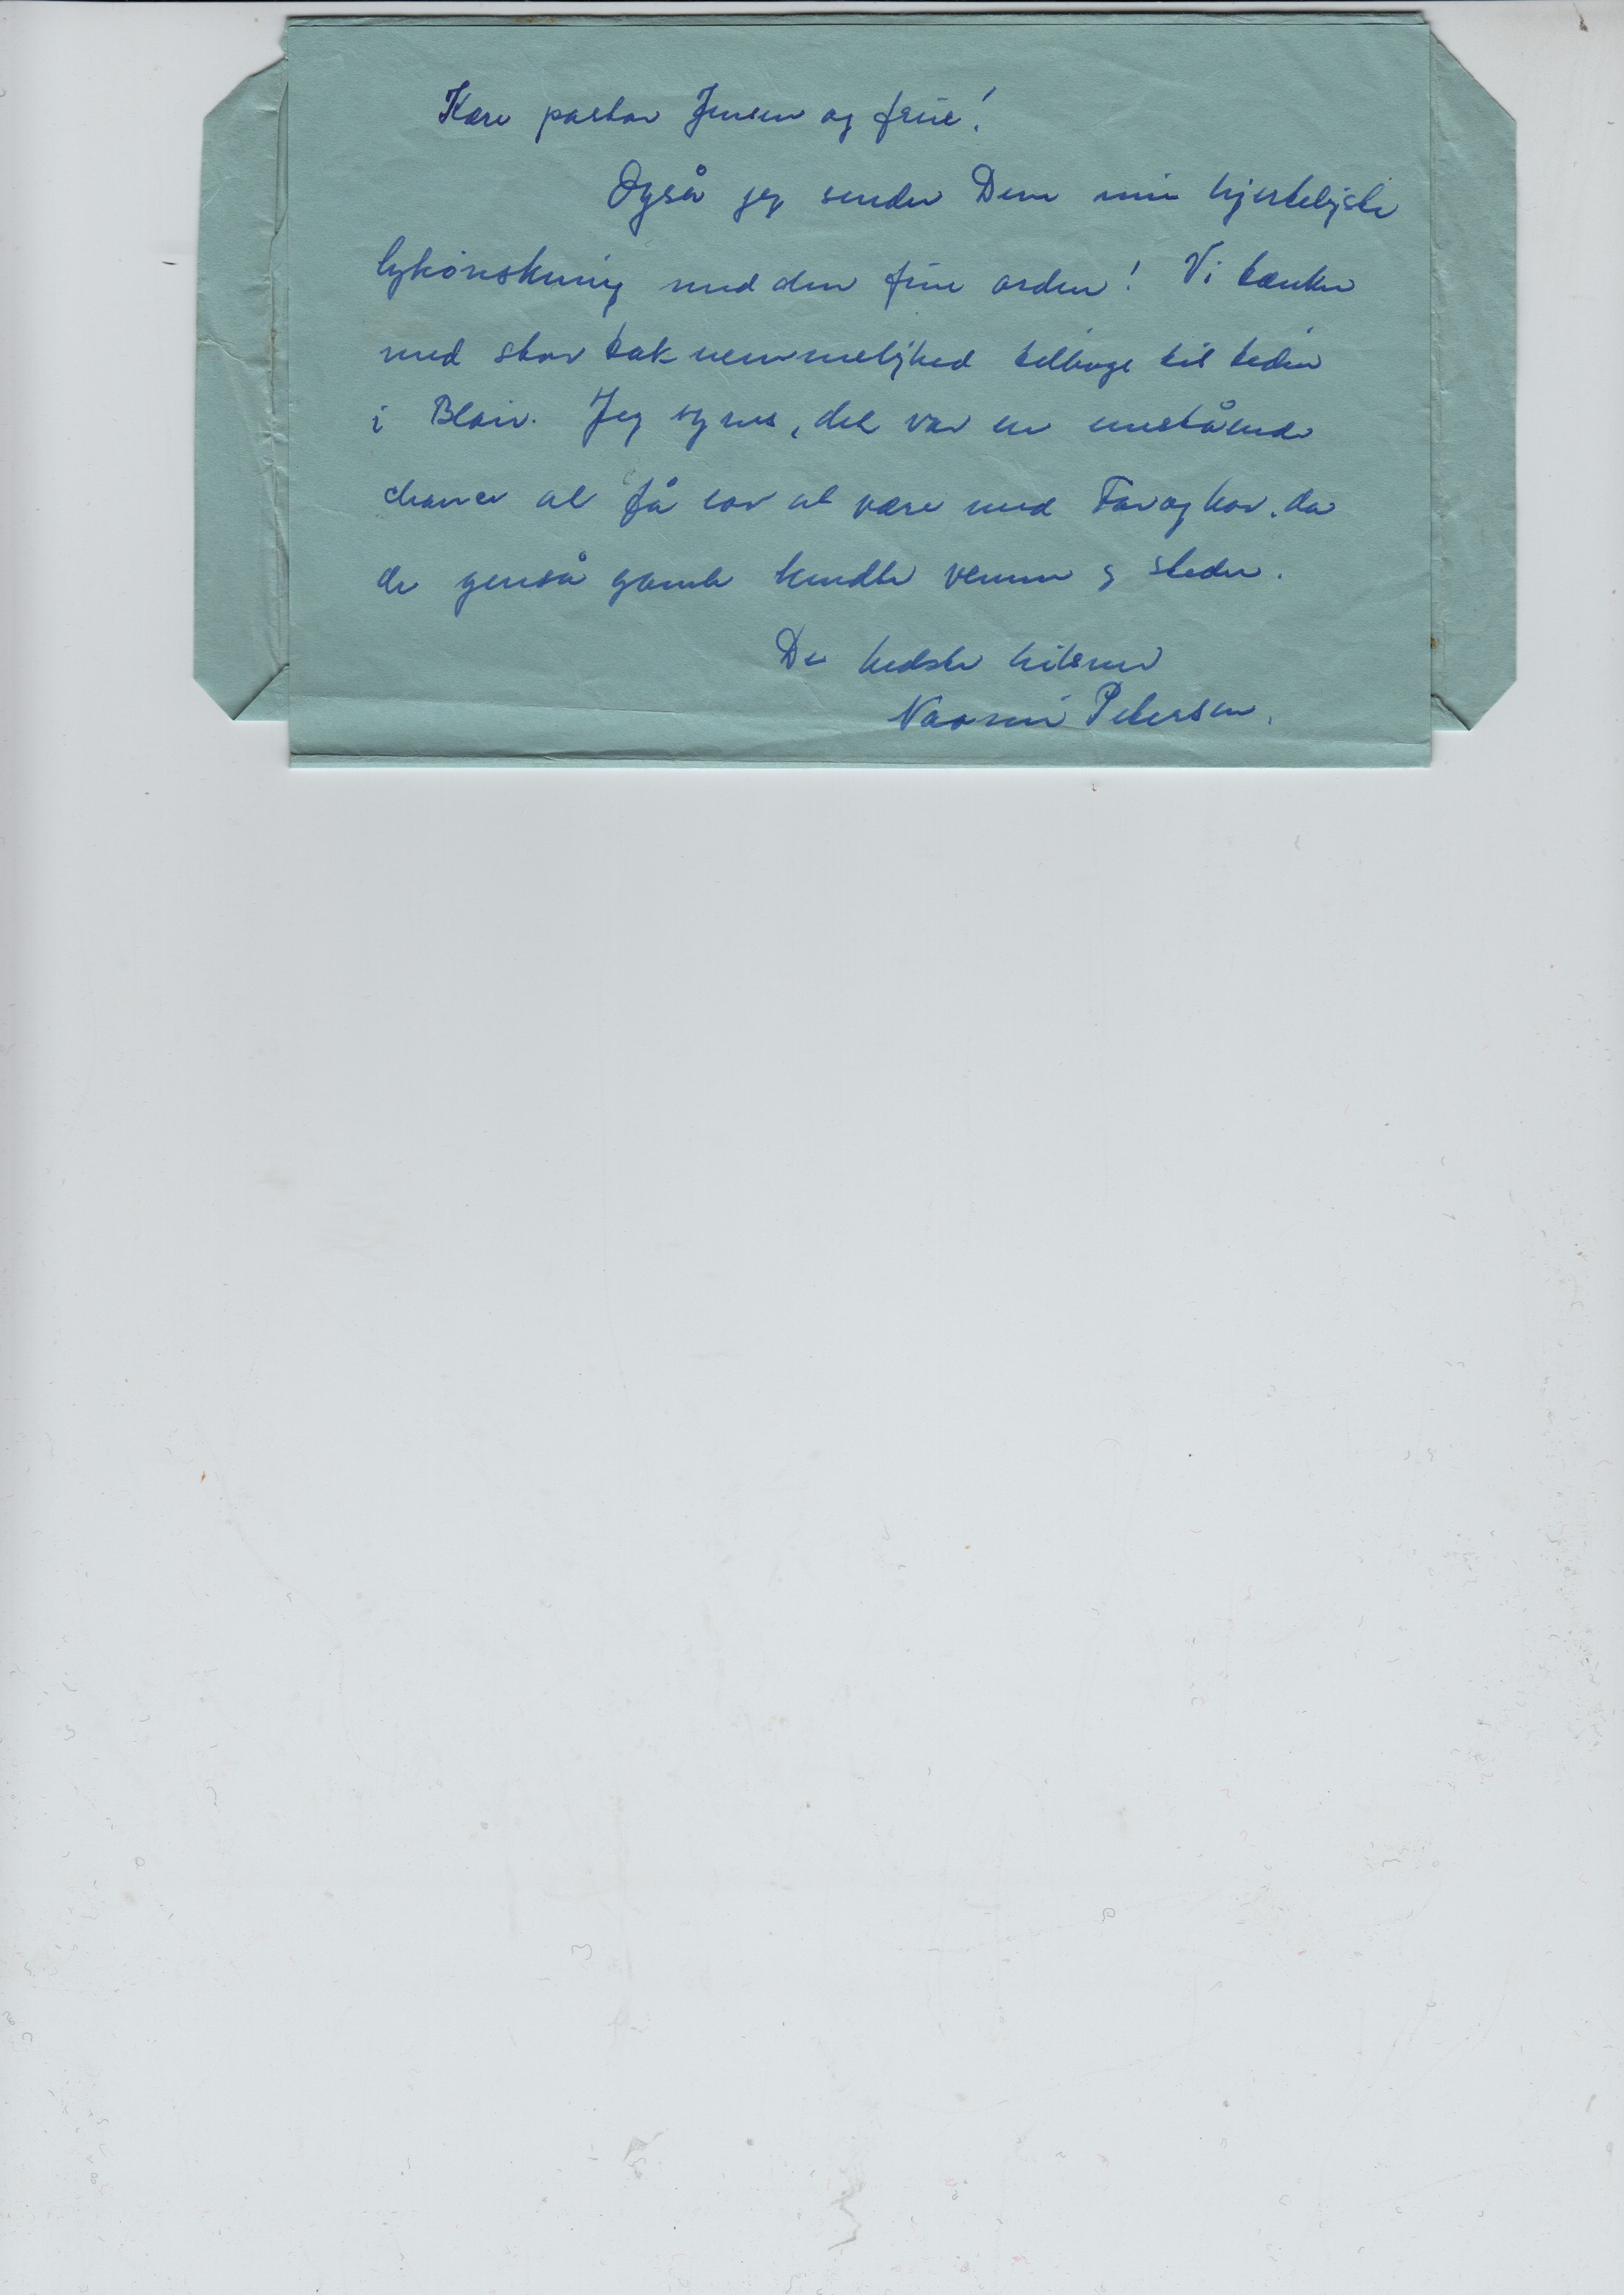 Kære pastor Jensen og frue!
Også jeg sender Dem min hjerteligste
lykønskning med den fine orden! Vi tænker
med stor taknemmelighed tilbage til tiden
i Blair. Jeg synes, det var en enestående
chance at få lov at være med Far og Mor, da
de genså gamle kendte venner og steder.
De bedste hilsner
Naomi Petersen.